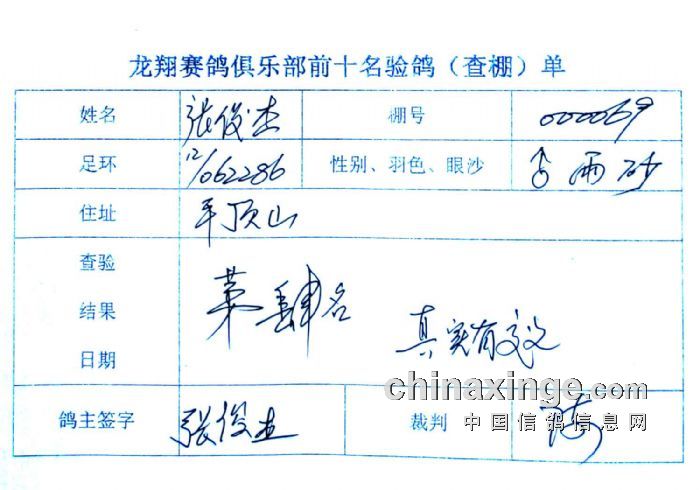 龙翔赛鸽俱乐部前十名验鸽（查棚）单
姓名 张俊杰 棚号 000069
足环 12/062286 性别、羽色、眼沙 ♂ 雨 砂
住址 平顶山
查验
结果
日期
第肆名
真实有效
鸽主签字 张俊杰 裁判
chinaxinge.com
中国信鸽信息网